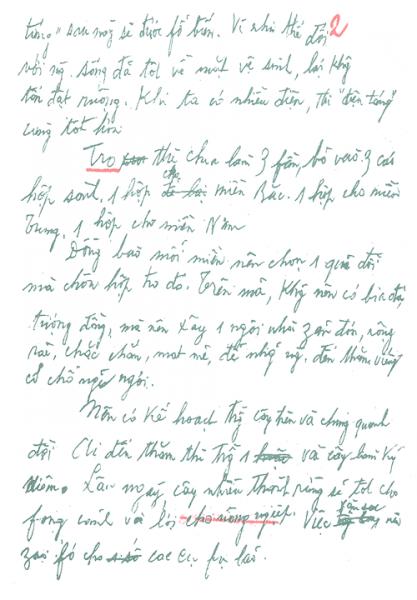 táng" sau này sẽ được fổ biến. Vì như thế đối 2
với ng sống đã tốt về mặt vệ sinh, lại khg
tốn đạt ruộng. Khi ta có nhiều điện, thì "điện táng"
càng tốt hơn
Tro thì chia làm 3 fần, bỏ vào 3 cái
hộp sành, 1 hộp cho miền Bắc. 1 hộp cho miền
Trung, 1 hộp cho miền Nam
Đồng bào mỗi miền nên chọn 1 quả đồi
mà chôn hộp tro đó. Trên mả, khg nên có bia đá,
tượng đồng, mà nên xây 1 ngôi nhà zản đơn, rộng
rãi, chắc chắn, mát mẻ, để nhg ng đến thăm viếng
có chỗ nghỉ ngơi.
Nên có kế hoạch thg cây trên và chung quanh
đồi. Ai đến thăm thì thg 1 và cây làm kỷ
niệm. Lâu ngày, cây nhiều thành rừng sẽ tốt cho
fong cảnh và lợi cho nông nghiệp. Việc săn sóc nên
zao fó cho các cụ fụ lão.